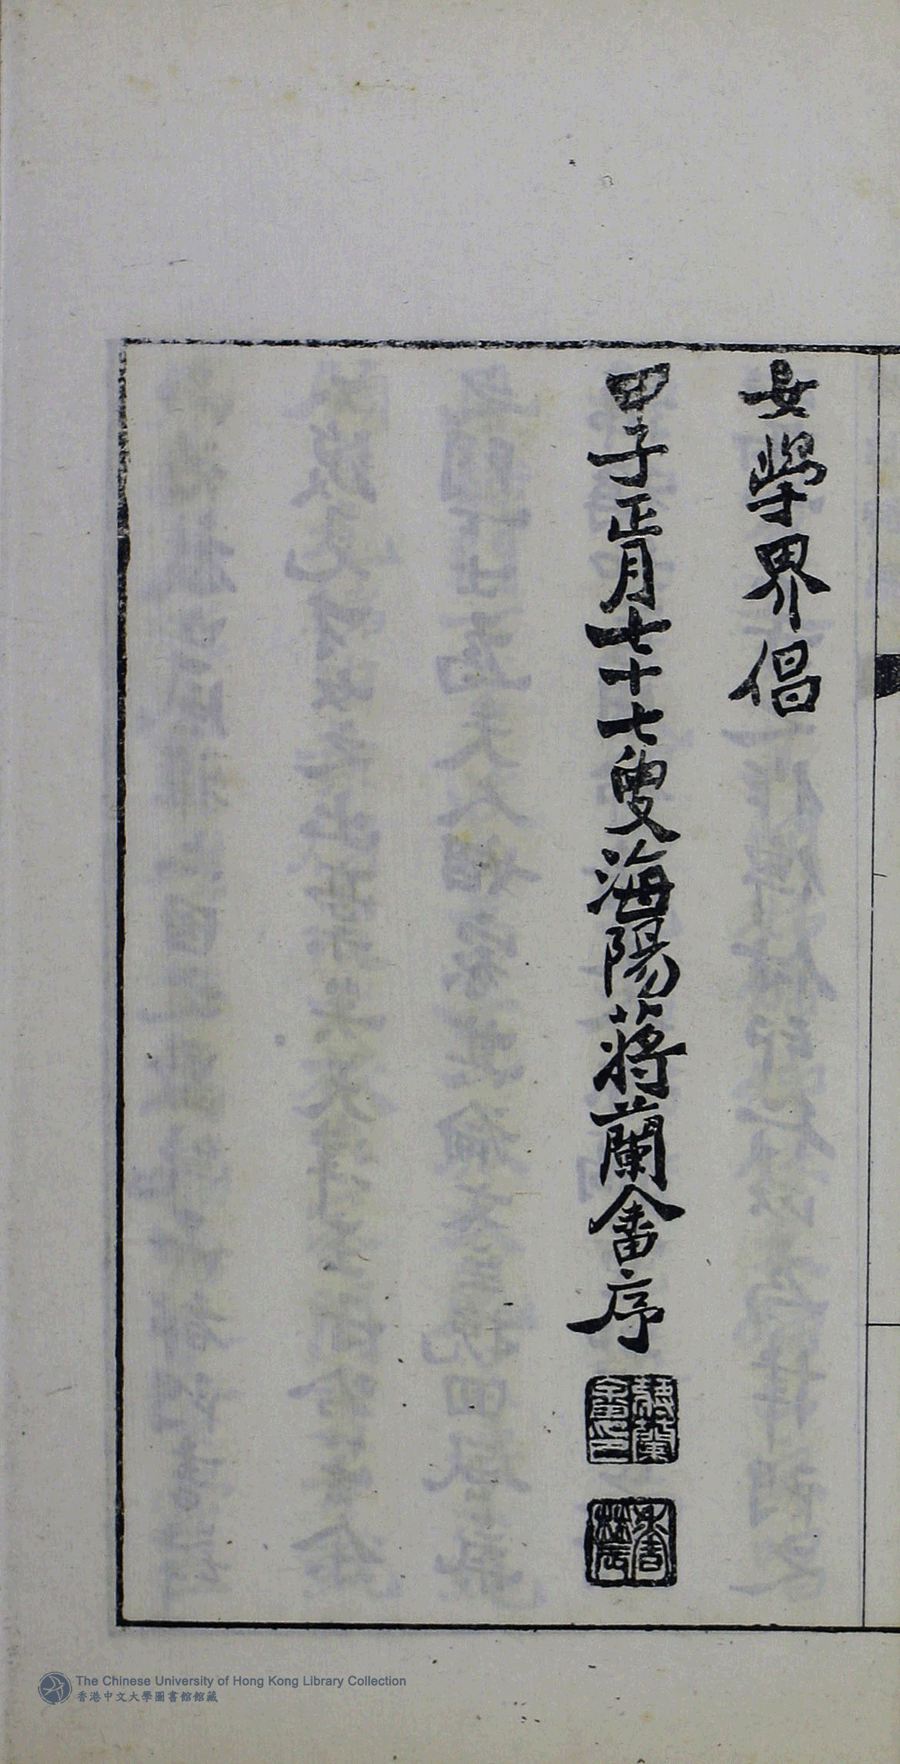 女學界倡
甲子正月七十七叟海陽蔣蘭畬序
The Chinese University of Hong Kong Library Collection
香港中文大學圖書館館藏